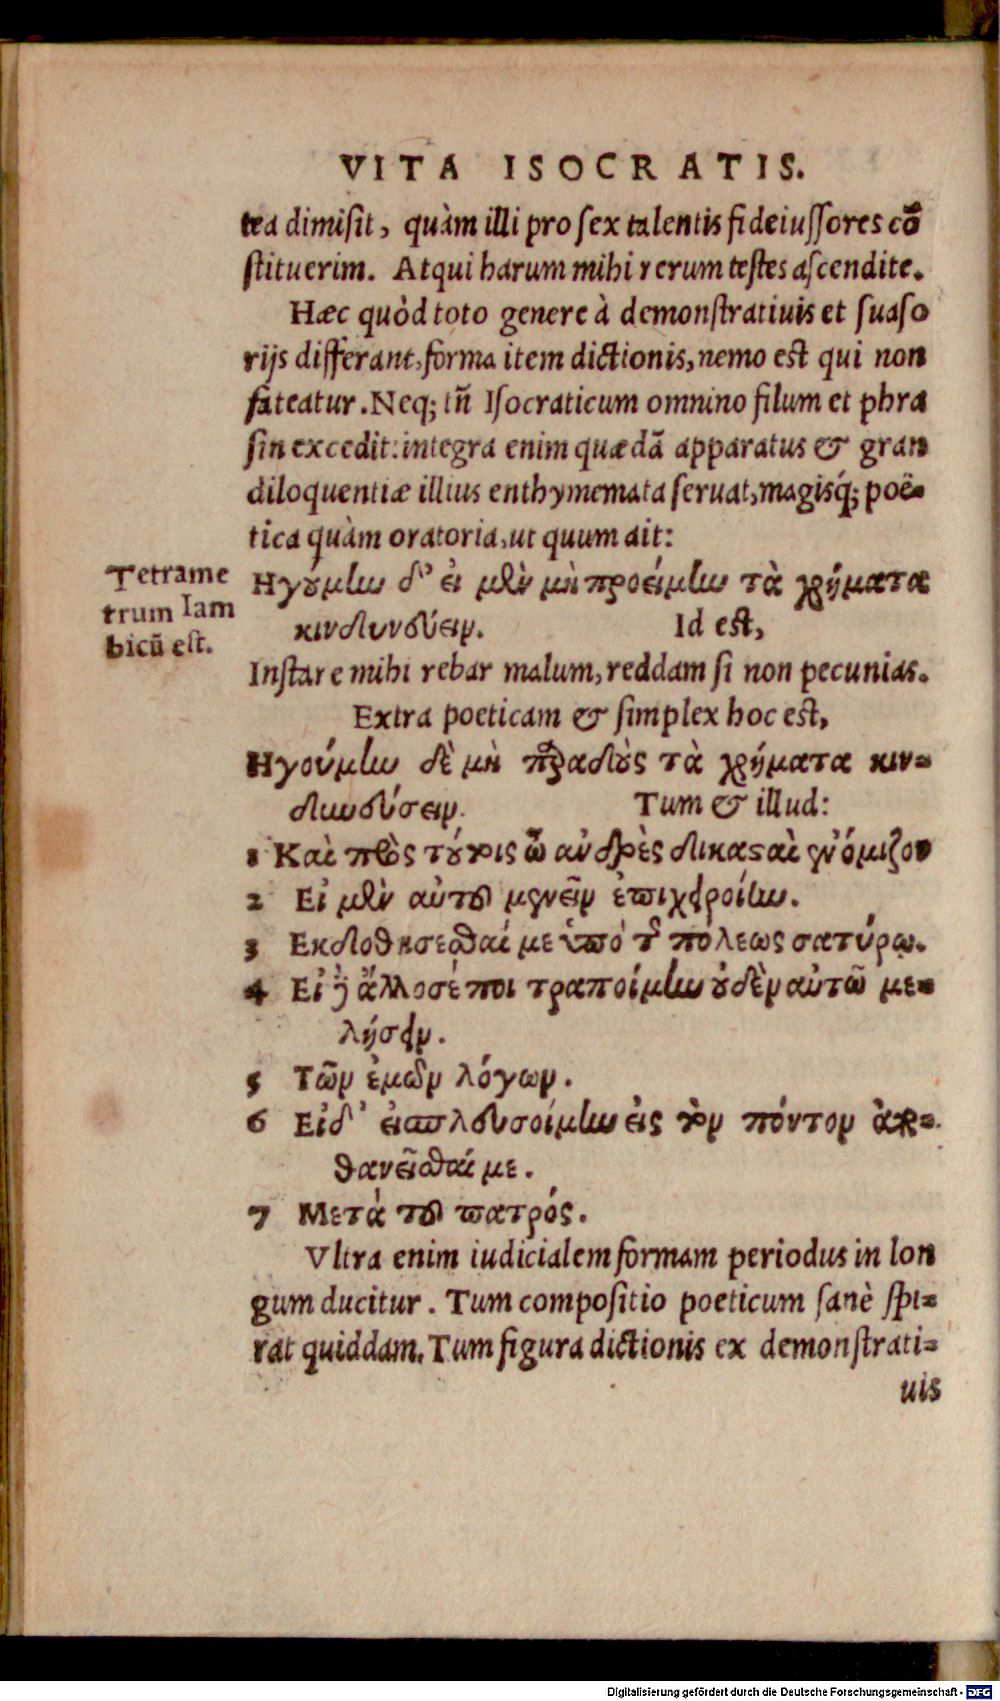 VITA ISOCRATIS.
tea dimisit, quàm illi pro sex talentis fideiussores cõ
stituerim. Atqui harum mihi rerum testes ascendite.
Hæc quòd toto genere à demonstratiuis et suaso
rijs differant, forma item dictionis, nemo est qui non
fateatur. Neq; tñ Isocraticum omnino filum et phra
sin excedit: integra enim quædã apparatus & gran
diloquentiæ illius enthymemata seruat, magisq́; poë-
tica quàm oratoria, ut quum ait:
Tetrame
trum Iam
bicũ est.
Ηγούμην δ' εἰ μὲν μὴ προείμην τὰ χρήματα
κινδυνεύειν. Id est,
Instare mihi rebar malum, reddam si non pecunias.
Extra poeticam & simplex hoc est,
Ηγούμην δὲ μὴ παραδιδοὺς τὰ χρήματα κιν-
δυνεύσειν. Tum & illud:
1 Καὶ πρὸς τούτοις ὦ ἄνδρες δικασαὶ ἐνόμιζον
2 Εἰ μὲν αὐτοῦ μενεῖν ἐπιχειροίην.
3 Εκδοθήσεσθαί με ὑπό τῆς πόλεως σατύρῳ.
4 Εἰ δ' ἄλλοσέ ποι τραποίμην οὐδὲν αὐτῶ με-
λήσειν.
5 Τῶν ἐμῶν λόγων.
6 Εἰ δ' εἰσπλευσοίμην εἰς τὸν πόντον ἀπο-
θανεῖσθαί με.
7 Μετὰ τοῦ πατρός.
Vltra enim iudicialem formam periodus in lon
gum ducitur. Tum compositio poeticum sanè spi-
rat quiddam. Tum figura dictionis ex demonstrati-
uis
Digitalisierung gefördert durch die Deutsche Forschungsgemeinschaft - DFG